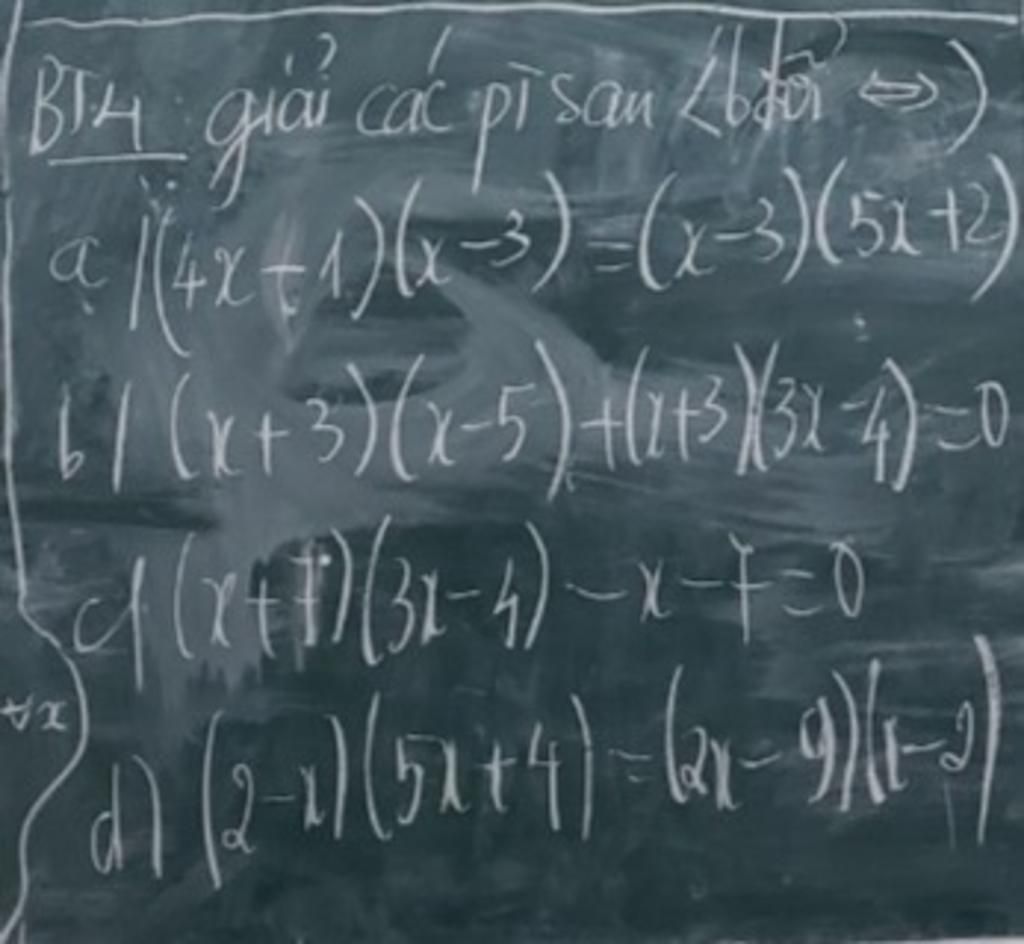 BT4 giải các pt sau (bđổi ⇔)
a/ (4x+1)(x-3) = (x-3)(5x+2)
b/ (x+3)(x-5)+(x+3)(3x-4)=0
c/ (x+7)(3x-4)-x-7=0
∀x
d/ (2-x)(5x+4)=(2x-9)(x-2)